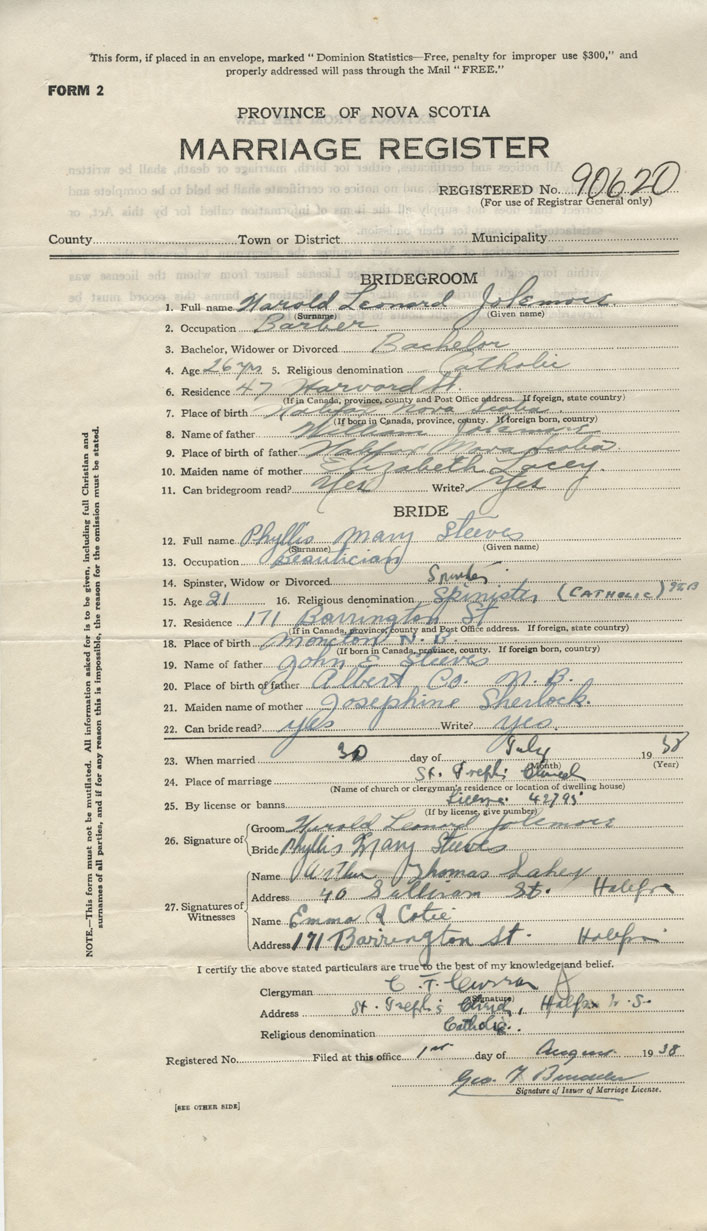 This form, if placed in an envelope, marked "Dominion Statistics—Free, penalty for improper use $300," and
properly addressed will pass through the Mail "FREE."
FORM 2
PROVINCE OF NOVA SCOTIA
MARRIAGE REGISTER
REGISTERED No. 90620
(For use of Registrar General only)
County Town or District Municipality
BRIDEGROOM
1. Full name Harold Leonard
(Surname) (Given name)
2. Occupation Barber
3. Bachelor, Widower or Divorced Bachelor
4. Age 26 yrs 5. Religious denomination Catholic
6. Residence 47 Harvard St.
(If in Canada, province, county and Post Office address. If foreign, state country)
7. Place of birth Halifax Nova Scotia
(If born in Canada, province, county. If foreign born, country)
8. Name of father William
9. Place of birth of father Halifax Nova Scotia
10. Maiden name of mother Elizabeth Lacey.
11. Can bridegroom read? Yes Write? Yes
BRIDE
12. Full name Phyllis Mary Steeves
(Surname) (Given name)
13. Occupation Beautician
14. Spinster, Widow or Divorced Spinster
15. Age 21 16. Religious denomination Spinister (CATHOLIC)
17. Residence 171 Barrington St
(If in Canada, province, county and Post Office address. If foreign, state country)
18. Place of birth Moncton N.B.
(If born in Canada, province, county. If foreign born, country)
19. Name of father John E Steeves
20. Place of birth of father Albert Co. N.B.
21. Maiden name of mother Josephine Sherlock.
22. Can bride read? yes Write? yes.
23. When married 30 day of July 1938
(Month) (Year)
24. Place of marriage St. Joseph's Church
(Name of church or clergyman's residence or location of dwelling house)
25. By license or banns License 42795
(If by license, give number)
26. Signature of
Groom Harold Leonard
Bride Phyllis Mary Steeves
27. Signatures of Witnesses
Name Arthur Thomas Lahey
Address 40 Sullivan St. Halifax
Name Emma A Cotie
Address 171 Barrington St. Halifax
I certify the above stated particulars are true to the best of my knowledge and belief.
Clergyman C. F. Curran
(Signature)
Address St. Joseph's Church, Halifax N.S.
Religious denomination Catholic.
Registered No. Filed at this office 1st day of August 1938
Geo. F.
Signature of Issuer of Marriage License.
[SEE OTHER SIDE]
NOTE.—This form must not be mutilated. All information asked for is to be given, including full Christian and
surnames of all parties, and if for any reason this is impossible, the reason for the omission must be stated.